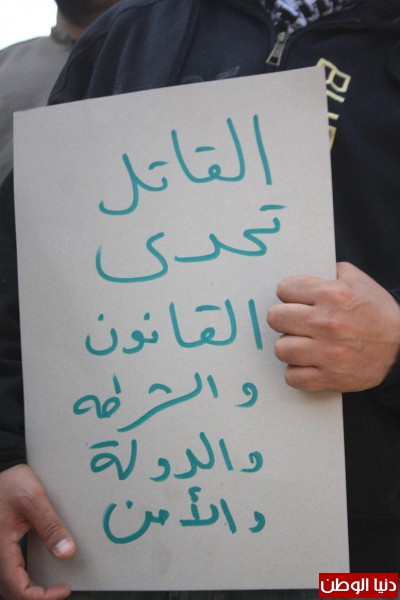 القاتل
تحدى
القانون
والشرطه
والدولة
والأمن
دنيا الوطن